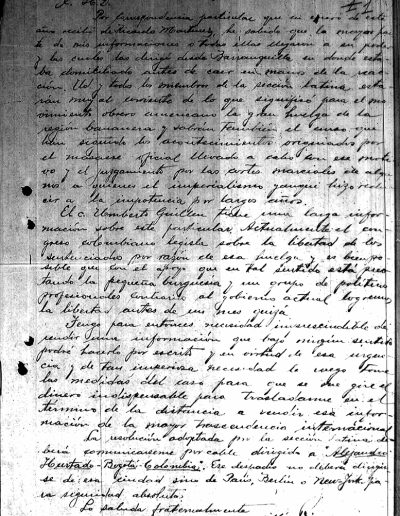 Por correspondencia particular que en enero de este
año recibí de Ricardo Martínez, he sabido que la mayor par
te de mis informaciones o todas ellas llegaron a su poder
y las cuales las dirigí desde Barranquilla en donde esta
ba domiciliado antes de caer en manos de la reac
ción. Ud. y todos los miembros de la sección latina esta
rán muy al corriente de lo que significó para el mo
vimiento obrero americano la gran huelga de la
región bananera y sabrán también el curso que
han seguido los acontecimientos originados por
el masacre oficial llevado a cabo con ese moti
vo y el juzgamiento por las cortes marciales de algu
nos a quienes el imperialismo yanqui hizo redu
cir a la impotencia por largos años.
El c. Humberto Guillen tiene una larga infor
mación sobre este particular. Actualmente el con
greso colombiano legisla sobre la libertad de los
sentenciados por razón de esa huelga y es bien po
sible que con el apoyo que en tal sentido está pres
tando la pequeña burguesía y un grupo de políticos
profesionales contrario al gobierno actual logremos
la libertad antes de un mes quizá.
Tengo para entonces necesidad imprescindible de
rendir una información que bajo ningún sentido
podré hacerlo por escrito y en virtud de esa urgen
cia y de tan imperiosa necesidad le ruego tome
las medidas del caso para que se me gire el
dinero indispensable para trasladarme en el
término de la distancia a rendir esa infor
mación de la mayor trascendencia internacional
La resolución adoptada por la sección latina de
berá comunicarseme por cable dirigido a "Alejandro
Hurtado-Bogotá-Colombia". Ese despacho no deberá dirigir
se de esa ciudad sino de París, Berlín o New York pa
ra seguridad absoluta.
Lo saluda fraternalmente